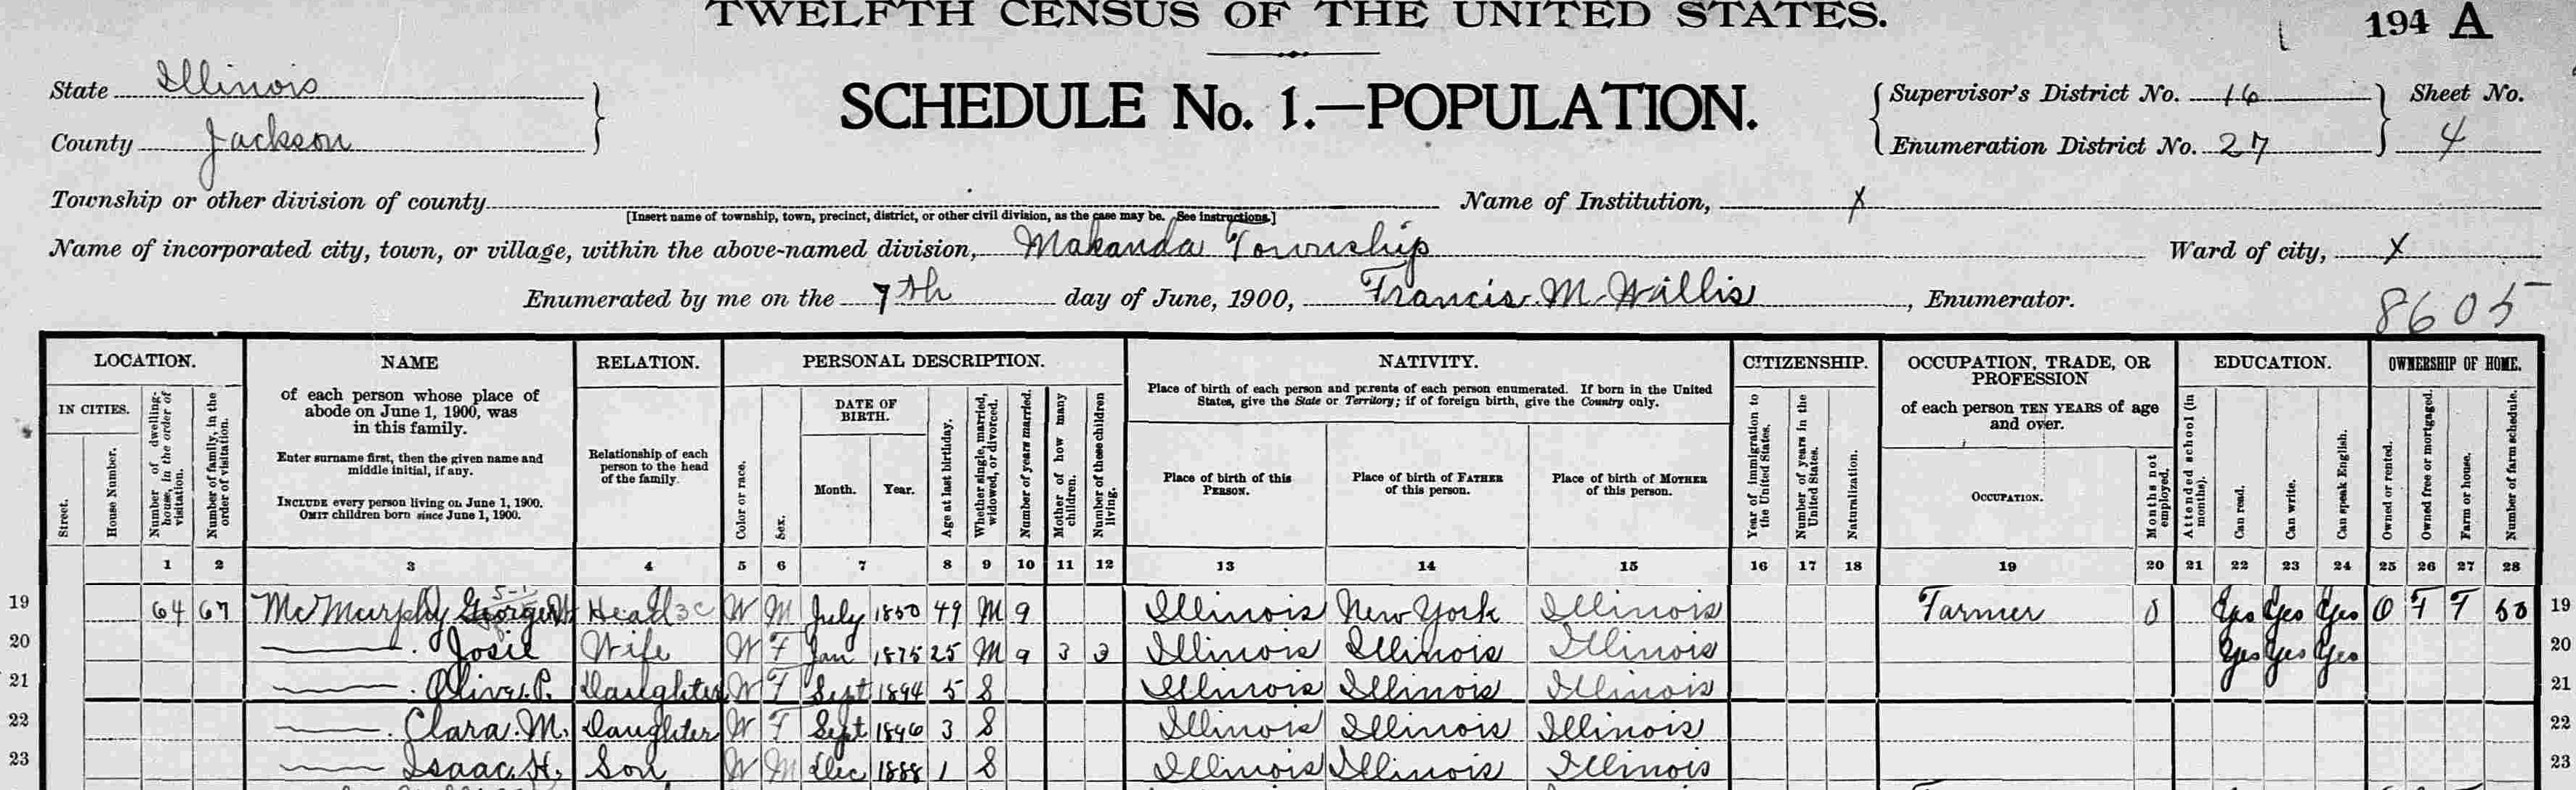 TWELFTH CENSUS OF THE UNITED STATES.
194 A
State Illinois
County Jackson
SCHEDULE No. 1.—POPULATION.
Supervisor's District No. 16
Enumeration District No. 27
Sheet No.
4
Township or other division of county
[Insert name of township, town, precinct, district, or other civil division, as the case may be. See instructions.]
Name of Institution, X
Name of incorporated city, town, or village, within the above-named division, Makanda Township
Ward of city, X
Enumerated by me on the 7th day of June, 1900, Francis M Willis, Enumerator.
8605
LOCATION.
IN CITIES.
Street.
House Number.
Number of dwelling-house, in the order of visitation.
Number of family, in the order of visitation.
NAME
of each person whose place of abode on June 1, 1900, was in this family.
Enter surname first, then the given name and middle initial, if any.
INCLUDE every person living on June 1, 1900.
OMIT children born since June 1, 1900.
RELATION.
Relationship of each person to the head of the family.
PERSONAL DESCRIPTION.
Color or race.
Sex.
DATE OF BIRTH.
Month. Year.
Age at last birthday.
Whether single, married, widowed, or divorced.
Number of years married.
Mother of how many children.
Number of these children living.
NATIVITY.
Place of birth of each person and parents of each person enumerated. If born in the United States, give the State or Territory; if of foreign birth, give the Country only.
Place of birth of this PERSON.
Place of birth of FATHER of this person.
Place of birth of MOTHER of this person.
CITIZENSHIP.
Year of immigration to the United States.
Number of years in the United States.
Naturalization.
OCCUPATION, TRADE, OR PROFESSION
of each person TEN YEARS of age and over.
OCCUPATION.
Months not employed.
EDUCATION.
Attended school (in months).
Can read.
Can write.
Can speak English.
OWNERSHIP OF HOME.
Owned or rented.
Owned free or mortgaged.
Farm or house.
Number of farm schedule.
1 2 3 4 5 6 7 8 9 10 11 12 13 14 15 16 17 18 19 20 21 22 23 24 25 26 27 28
19 64 67 McMurphy George W Head W M July 1850 49 M 9 Illinois New York Illinois Farmer 0 Yes Yes Yes O F F 50 19
20 Josie Wife W F Jan 1875 25 M 9 3 3 Illinois Illinois Illinois Yes Yes Yes 20
21 Olive P. Daughter W F Sept 1894 5 S Illinois Illinois Illinois 21
22 Clara M. Daughter W F Sept 1896 3 S Illinois Illinois Illinois 22
23 Isaac H. Son W M Dec 1888 1 S Illinois Illinois Illinois 23